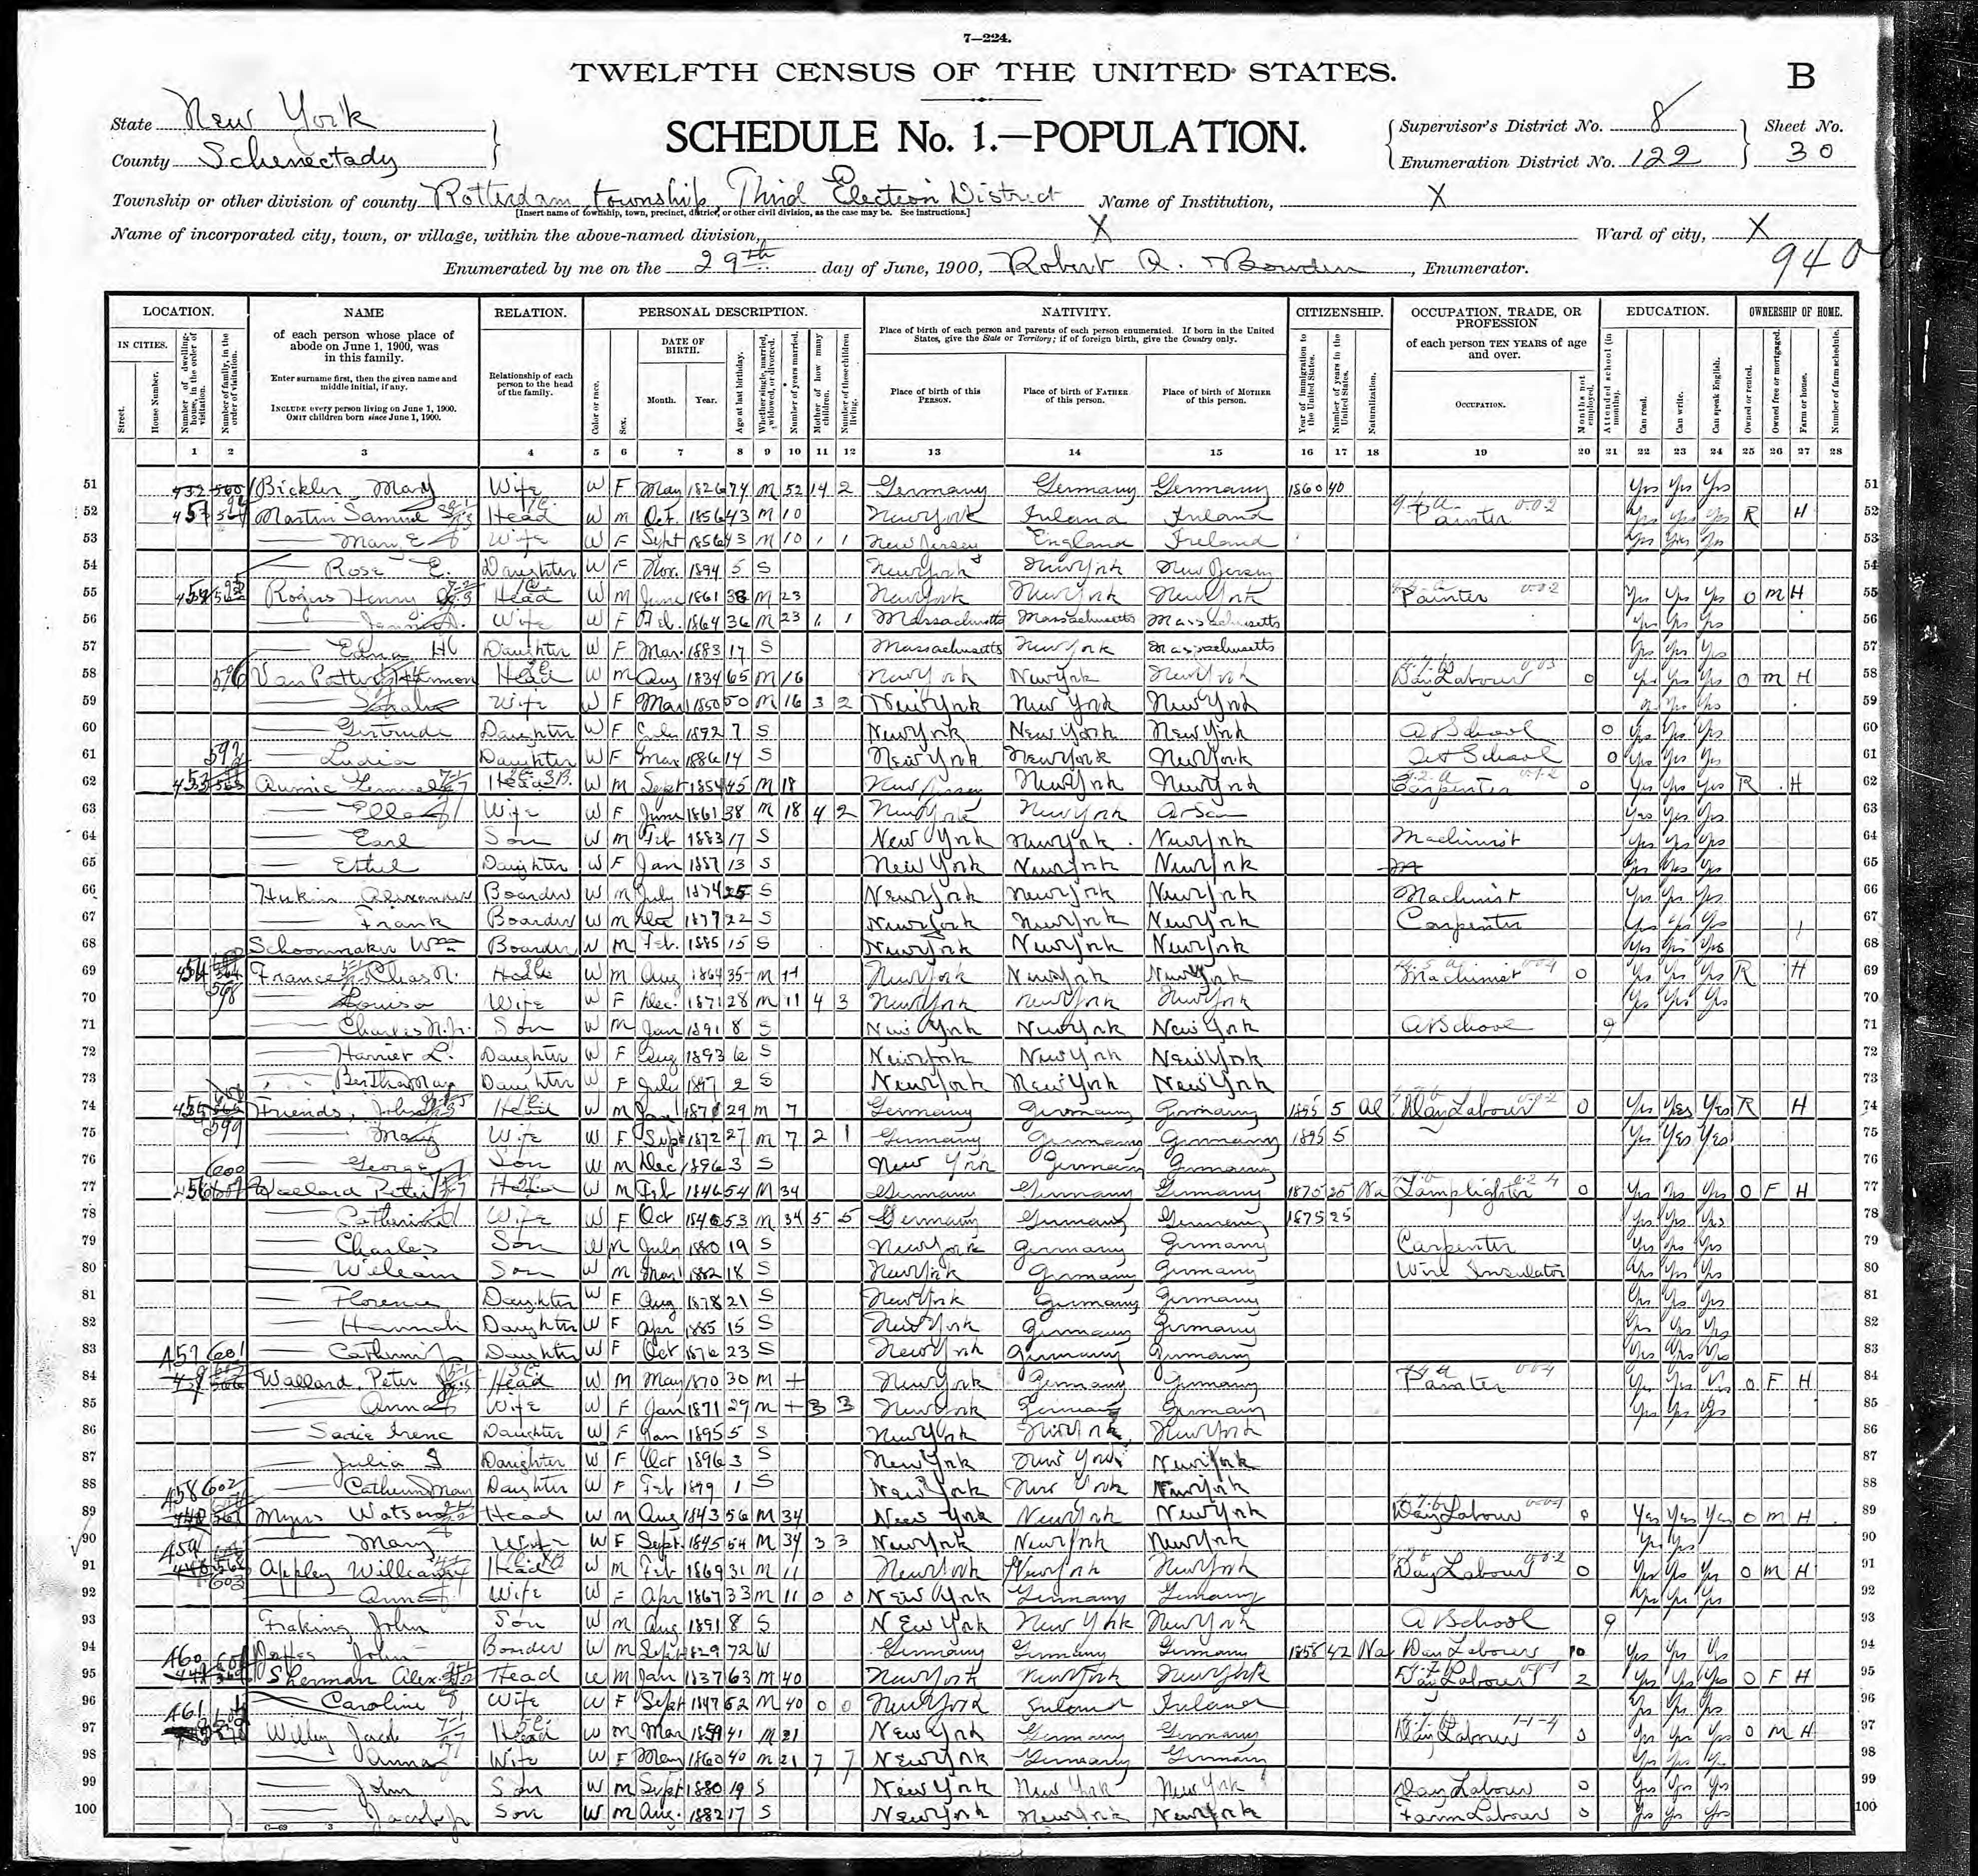 7—224.
TWELFTH CENSUS OF THE UNITED STATES.
B
State New York
County Schenectady
SCHEDULE No. 1.—POPULATION.
Supervisor's District No. 8
Enumeration District No. 122
Sheet No.
30
Township or other division of county Rotterdam township, Third Election District Name of Institution, X
[Insert name of township, town, precinct, district, or other civil division, as the case may be. See instructions.]
Name of incorporated city, town, or village, within the above-named division, X Ward of city, X
940
Enumerated by me on the 29th day of June, 1900, Robert A. Bowden, Enumerator.
LOCATION. NAME RELATION. PERSONAL DESCRIPTION. NATIVITY. CITIZENSHIP. OCCUPATION, TRADE, OR PROFESSION EDUCATION. OWNERSHIP OF HOME.
IN CITIES. Street. House Number. Number of dwelling-house, in the order of visitation. Number of family, in the order of visitation.
of each person whose place of abode on June 1, 1900, was in this family.
Enter surname first, then the given name and middle initial, if any.
INCLUDE every person living on June 1, 1900. OMIT children born since June 1, 1900.
Relationship of each person to the head of the family.
Color or race. Sex. DATE OF BIRTH. Month. Year. Age at last birthday. Whether single, married, widowed, or divorced. Number of years married. Mother of how many children. Number of these children living.
Place of birth of each person and parents of each person enumerated. If born in the United States, give the State or Territory; if of foreign birth, give the Country only.
Place of birth of this PERSON. Place of birth of FATHER of this person. Place of birth of MOTHER of this person.
Year of immigration to the United States. Number of years in the United States. Naturalization.
of each person TEN YEARS of age and over.
OCCUPATION. Months not employed.
Attended school (in months). Can read. Can write. Can speak English.
Owned or rented. Owned free or mortgaged. Farm or house. Number of farm schedule.
1 2 3 4 5 6 7 8 9 10 11 12 13 14 15 16 17 18 19 20 21 22 23 24 25 26 27 28
51 Bickler Mary Wife W F May 1826 74 M 52 14 2 Germany Germany Germany 1860 40 Yes Yes Yes 51
52 Martin Samuel Head W M Oct. 1856 43 M 10 New York Ireland Ireland Painter Yes Yes Yes R H 52
53 Mary E Wife W F Sept 1856 43 M 10 1 1 New Jersey England Ireland Yes Yes Yes 53
54 Rose E. Daughter W F Nov. 1894 5 S New York New York New Jersey 54
55 Henry Head W M June 1861 38 M 23 New York New York New York Painter Yes Yes Yes O M H 55
56 Wife W F Feb. 1864 36 M 23 1 1 Massachusetts Massachusetts Massachusetts Yes Yes Yes 56
57 Edna Daughter W F Mar. 1883 17 S Massachusetts New York Massachusetts Yes Yes Yes 57
58 596 Head W M Aug 1834 65 M 16 New York New York New York Day Labour 0 Yes Yes Yes O M H 58
59 Wife W F Mar 1850 50 M 16 3 2 New York New York New York Yes Yes 59
60 Gertrude Daughter W F July 1892 7 S New York New York New York At School 0 Yes Yes Yes 60
61 Lydia Daughter W F Mar 1886 14 S New York New York New York At School 0 Yes Yes Yes 61
62 453 Head W M Sept 1854 45 M 18 New Jersey New York New York Carpenter 0 Yes Yes Yes R H 62
63 Ella Wife W F June 1861 38 M 18 4 2 New York New York Yes Yes Yes 63
64 Earl Son W M Feb 1883 17 S New York New York New York Machinist Yes Yes Yes 64
65 Ethel Daughter W F Jan 1887 13 S New York New York New York Yes Yes Yes 65
66 Alexander Boarder W M July 1874 25 S New York New York New York Machinist Yes Yes Yes 66
67 Frank Boarder W M Dec 1877 22 S New York New York New York Carpenter Yes Yes Yes 67
68 Schoonmaker Wm Boarder W M Feb. 1885 15 S New York New York New York Yes Yes Yes 68
69 454 France Chas N. Head W M Aug 1864 35 M 11 New York New York New York Machinist 0 Yes Yes Yes R H 69
70 598 Louisa Wife W F Dec. 1871 28 M 11 4 3 New York New York New York Yes Yes Yes 70
71 Charles N. Jr. Son W M Jan 1891 8 S New York New York New York At School 9 71
72 Harriet L. Daughter W F Aug 1893 6 S New York New York New York 72
73 Bertha May Daughter W F July 1897 2 S New York New York New York 73
74 455 Friends, John Head W M Jan 1871 29 M 7 Germany Germany Germany 1895 5 Al Day Labour 0 Yes Yes Yes R H 74
75 599 Mary Wife W F Sept 1872 27 M 7 2 1 Germany Germany Germany 1895 5 Yes Yes Yes 75
76 George Son W M Dec 1896 3 S New York Germany Germany 76
77 456 600 Wallard Peter Head W M Feb 1846 54 M 34 Germany Germany Germany 1875 25 Na Lamplighter 0 Yes Yes Yes O F H 77
78 Catherine Wife W F Oct 1846 53 M 34 5 5 Germany Germany Germany 1875 25 Yes Yes Yes 78
79 Charles Son W M July 1880 19 S New York Germany Germany Carpenter Yes Yes Yes 79
80 William Son W M Mar 1882 18 S New York Germany Germany Wire Insulator Yes Yes Yes 80
81 Florence Daughter W F Aug 1878 21 S New York Germany Germany Yes Yes Yes 81
82 Hannah Daughter W F Apr 1885 15 S New York Germany Germany Yes Yes Yes 82
83 Catherine Daughter W F Oct 1876 23 S New York Germany Germany Yes Yes Yes 83
84 457 601 Wallard, Peter Head W M May 1870 30 M + New York Germany Germany Painter Yes Yes Yes O F H 84
85 Anna Wife W F Jan 1871 29 M + 3 3 New York Germany Germany Yes Yes Yes 85
86 Sadie Irene Daughter W F Jan 1895 5 S New York New York New York 86
87 Julia I Daughter W F Oct 1896 3 S New York New York New York 87
88 Catherine May Daughter W F Feb 1899 1 S New York New York New York 88
89 458 602 Myers Watson Head W M Aug 1843 56 M 34 New York New York New York Day Labour 0 Yes Yes Yes O M H 89
90 Mary Wife W F Sept. 1845 54 M 34 3 3 New York New York New York Yes Yes 90
91 459 603 Appley William Head W M Feb 1869 31 M 11 New York New York New York Day Labour 0 Yes Yes Yes O M H 91
92 Anna Wife W F Apr 1867 33 M 11 0 0 New York Germany Germany Yes Yes Yes 92
93 Fraking John Son W M Aug 1891 8 S New York New York New York At School 9 93
94 John Boarder W M Sept 1829 72 W Germany Germany Germany 1858 42 Na Day Labour 10 Yes Yes Yes 94
95 460 Sherman Alex. Head W M Jan 1837 63 M 40 New York New York New York Day Labour 2 Yes Yes Yes O F H 95
96 Caroline Wife W F Sept 1847 52 M 40 0 0 New York Ireland Ireland Yes Yes Yes 96
97 461 Willey Jacob Head W M Mar 1859 41 M 21 New York Germany Germany Day Labour 0 Yes Yes Yes O M H 97
98 Anna Wife W F May 1860 40 M 21 7 7 New York Germany Germany Yes Yes Yes 98
99 John Son W M Sept 1880 19 S New York New York New York Day Labour 0 Yes Yes Yes 99
100 Jacob Jr Son W M Aug. 1882 17 S New York New York New York Farm Labour 0 Yes Yes Yes 100